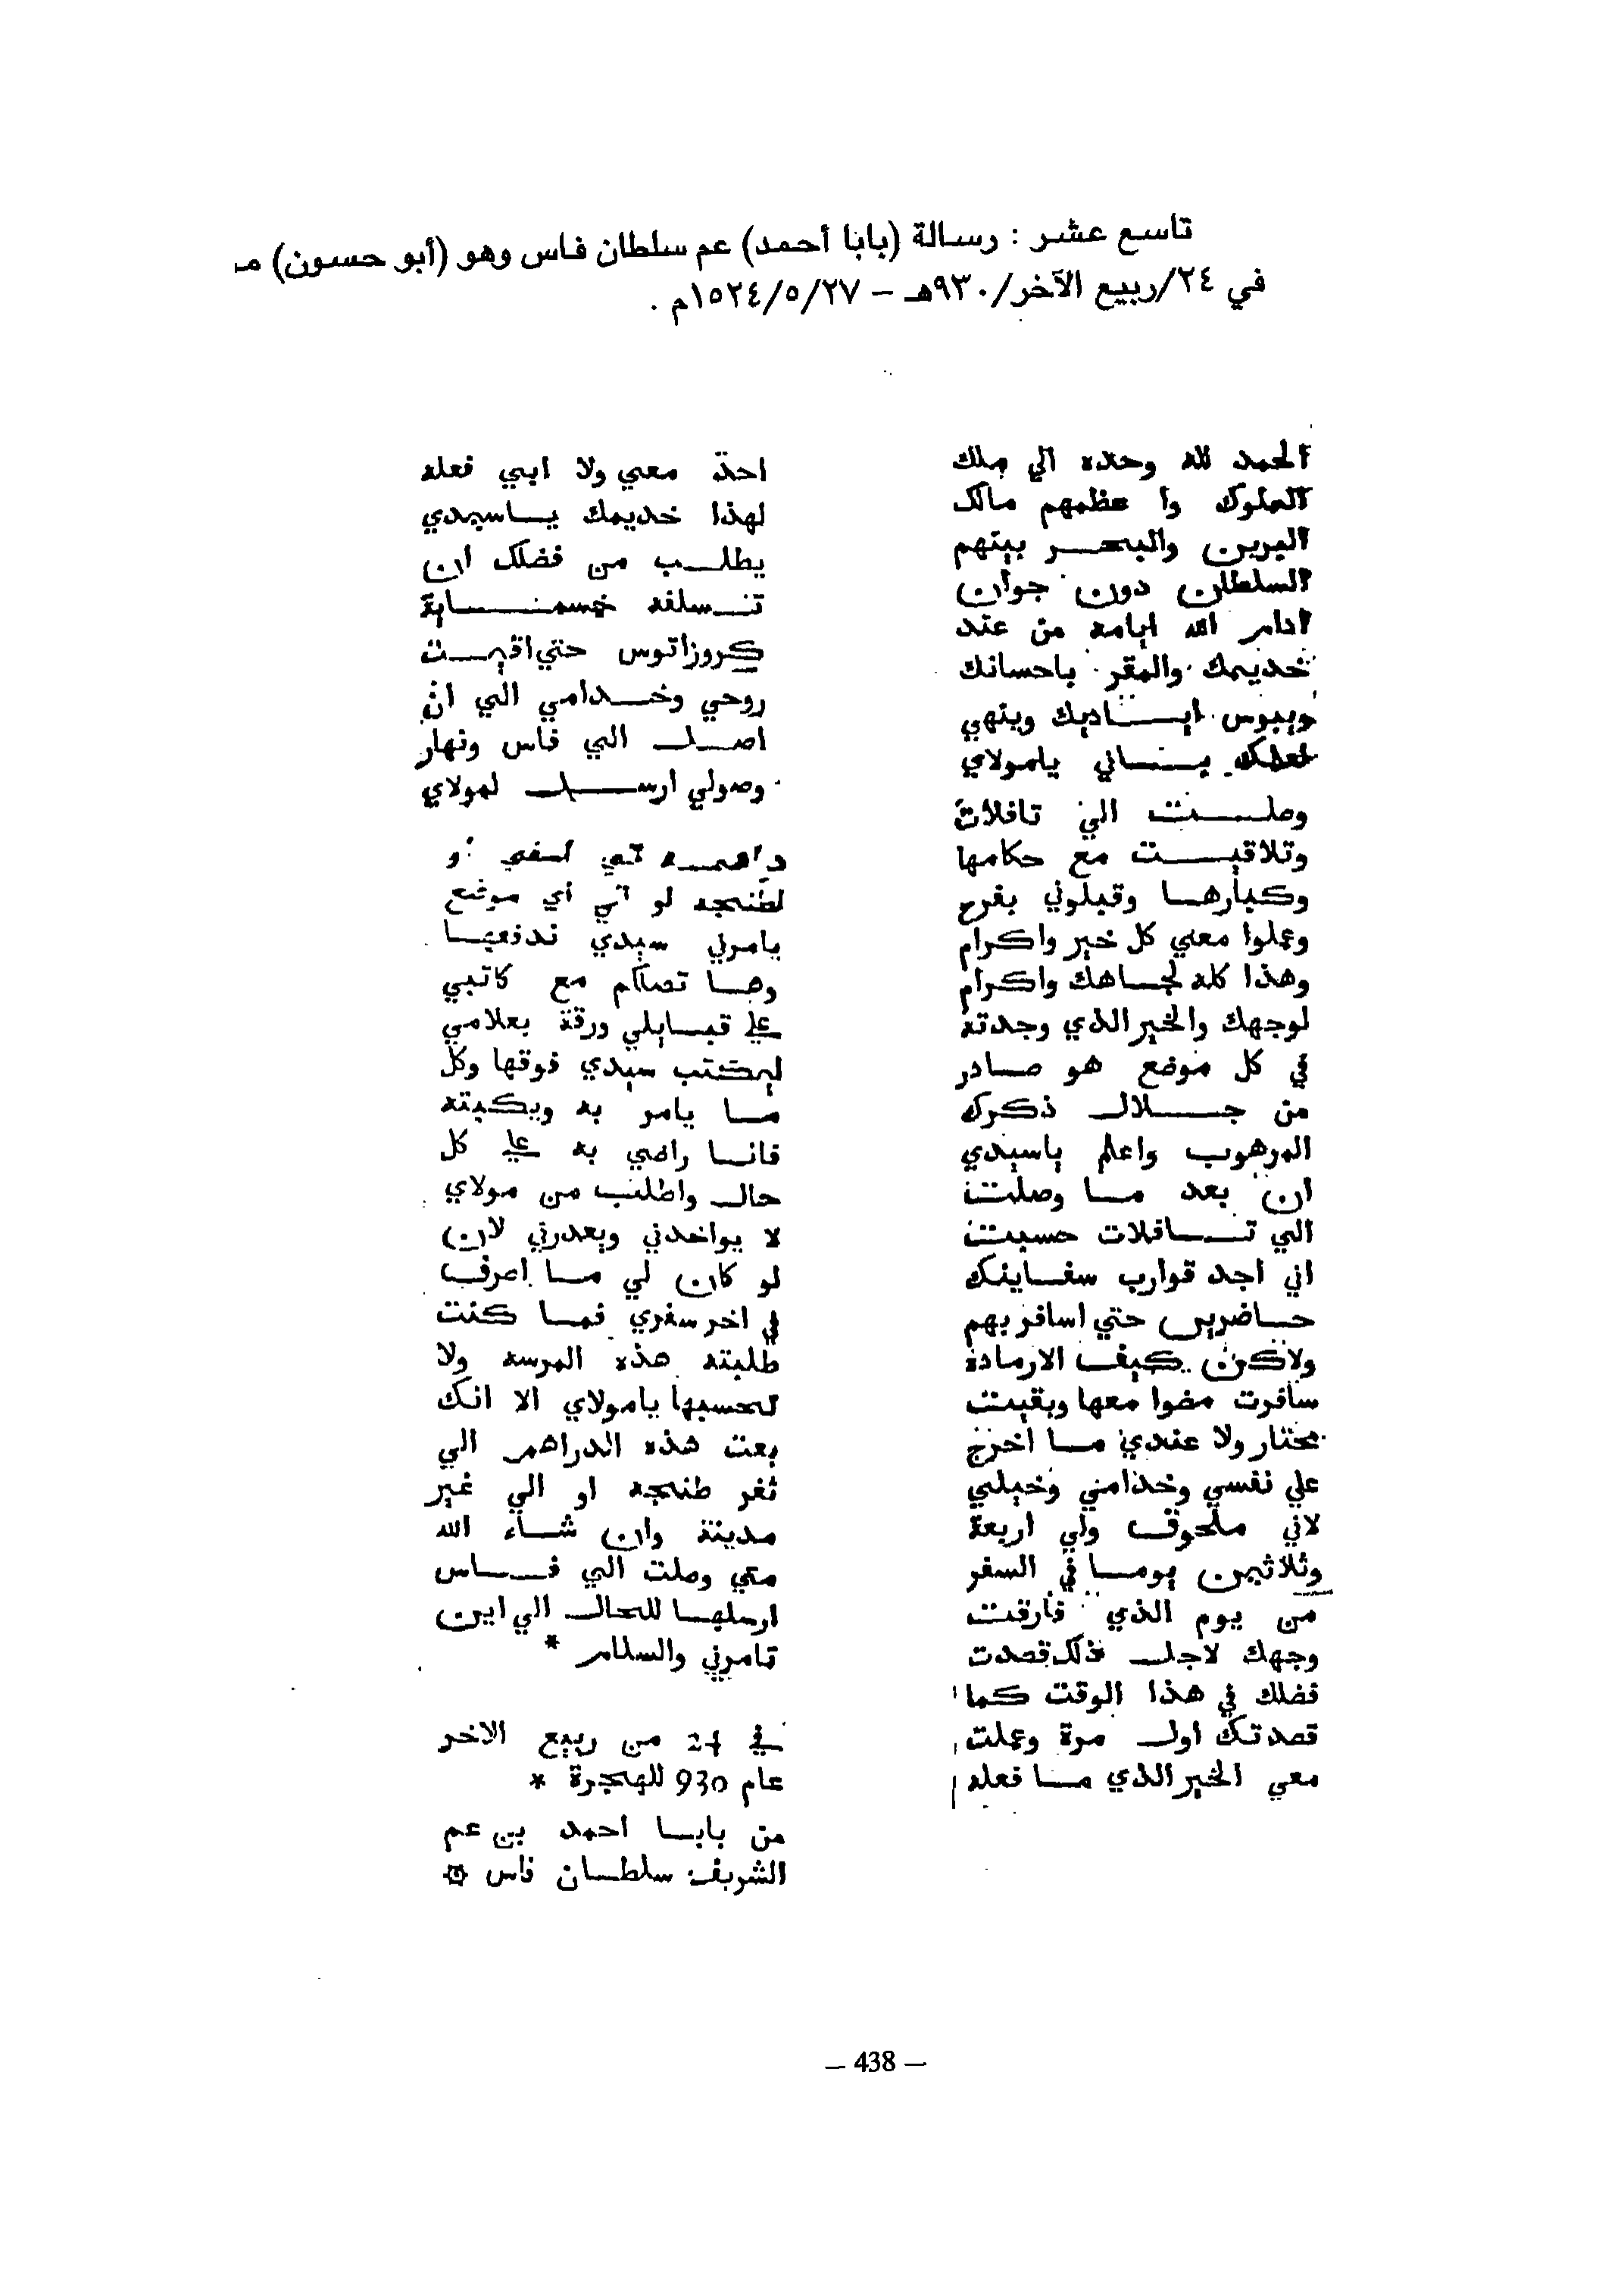 تاسع عشر : رسالة (بابا أحمد) عم سلطان فاس وهو (أبو حسون)
في ٢٤/ربيع الآخر/٩٣٠هـ – ١٥٢٤/٥/٢٧م .
الحمد لله وحده الي ملك
الملوك وا عظمهم مالك
البرين والبحر بينهم
السلطان دون جوان
ادام الله ايامه من عند
خديمك والمقر باحسانك
ويبوس اياديك وينهي
لعلمك باني يامولاي
وصلت الي تافلات
وتلاقيت مع حكامها
وكبارها وقبلوني بفرح
وعملوا معي كل خير واكرام
وهذا كله لجاهك واكرام
لوجهك والخير الذي وجدته
في كل موضع هو صادر
من جلال ذكرك
المرهوب واعلم ياسيدي
ان بعد ما وصلت
الي تافلات حسبت
اني اجد قوارب سفاينك
حاضرين حتي اسافر بهم
ولاكن كيف الارمادة
سافرت مضوا معها وبقيت
محتار ولا عندي ما اخرج
علي نفسي وخدامي وخيلي
لاني ملحوق ولي اربعة
وثلاثين يوما في السفر
من يوم الذي فارقت
وجهك لاجل ذلك قصدت
فضلك في هذا الوقت كما
قصدتك اول مرة وعملت
معي الخير الذي ما فعله
احد معي ولا ابي فعله
لهذا خديمك ياسيدي
يطلب من فضلك ان
تسلفه خمسماية
كروزاتوس حتي اقيت
روحي وخدامي الي ان
اصل الي فاس ونهار
وصولي ارسل لمولاي
دراهمه الي اسفي او
لطنجه او الي اي موضع
يامرني سيدي ندفعها
وها تصلكم مع كاتبي
علي قبايلي ورقة بعلامي
ليكتب سيدي فوقها وكل
ما يامر به ويكبته
فانا راضي به علي كل
حال واطلب من مولاي
لا يواخدني ويعدرني لان
لو كان لي ما اصرف
في اخر سفري فما كنت
طلبته هذه المرسه ولا
تحسبها يامولاي الا انك
بعت هذه الدراهم الي
ثغر طنجه او الي غير
مدينة وان شاء الله
متي وصلت الي فاس
ارسلها للحال الي اين
تامرني والسلام *
في 24 من ربيع الاخر
عام 930 للهجرة *
من بابا احمد بن عم
الشريف سلطان فاس
– 438 –